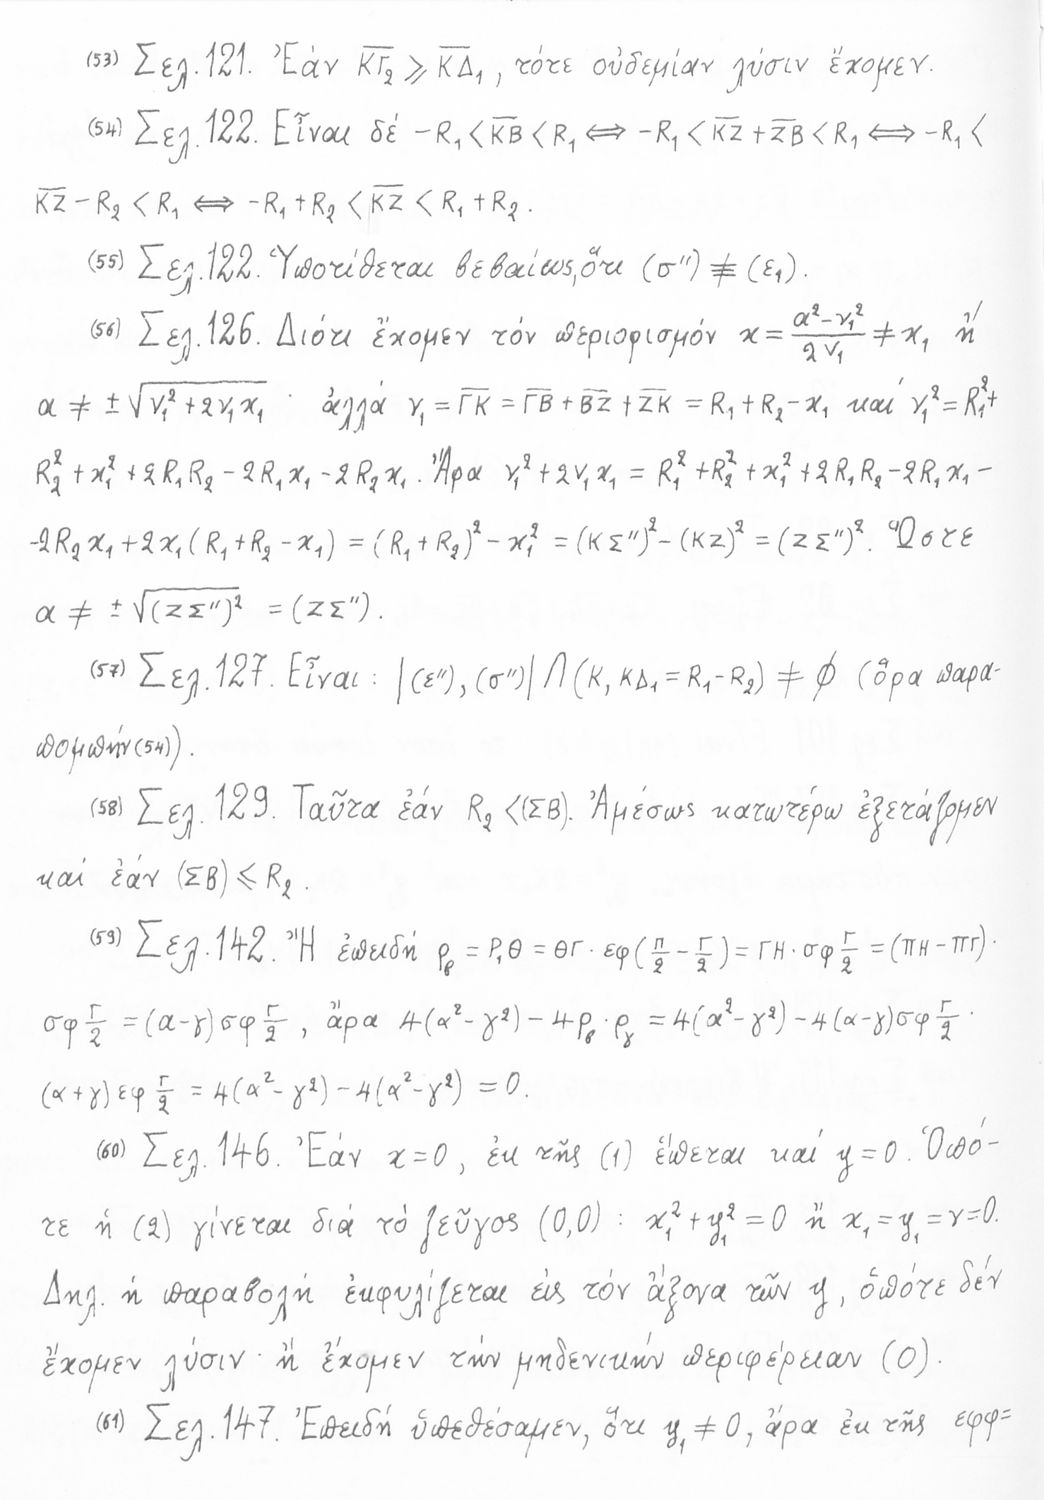 (53) Σελ. 121. Ἐάν K̅Γ̅₂ ⩾ K̅Δ̅₁, τότε οὐδεμίαν λύσιν ἔχομεν.
(54) Σελ. 122. Εἶναι δέ -R₁ < K̅B̅ < R₁ ⟺ -R₁ < K̅Z̅ + Z̅B̅ < R₁ ⟺ -R₁ <
K̅Z̅ - R₂ < R₁ ⟺ -R₁ + R₂ < K̅Z̅ < R₁ + R₂.
(55) Σελ. 122. Ὑποτίθεται βεβαίως, ὅτι (σ'') ≢ (ε₁).
(56) Σελ. 126. Διότι ἔχομεν τόν περιορισμόν x = (α² - ν₁²)/(2ν₁) ≠ x₁ ἤ
α ≠ ±√(ν₁² + 2ν₁x₁) · ἀλλά ν₁ = Γ̅K̅ = Γ̅B̅ + B̅Z̅ + Z̅K̅ = R₁ + R₂ - x₁ καί ν₁² = R₁² +
R₂² + x₁² + 2R₁R₂ - 2R₁x₁ - 2R₂x₁. Ἄρα ν₁² + 2ν₁x₁ = R₁² + R₂² + x₁² + 2R₁R₂ - 2R₁x₁ -
-2R₂x₁ + 2x₁(R₁ + R₂ - x₁) = (R₁ + R₂)² - x₁² = (KΣ'')² - (KZ)² = (ZΣ'')². Ὥστε
α ≠ ±√(ZΣ'')² = (ZΣ'').
(57) Σελ. 127. Εἶναι : |(ε''), (σ'')| ⋂ (K, KΔ₁ = R₁ - R₂) ≠ ∅ (ὅρα παρα-
πομπήν (54)).
(58) Σελ. 129. Ταῦτα ἐάν R₂ < (ΣB). Ἀμέσως κατωτέρω ἐξετάζομεν
καί ἐάν (ΣB) ⩽ R₂.
(59) Σελ. 142. Ἤ ἐπειδή ρᵦ = P₁Θ = ΘΓ · εφ(π/2 - Γ/2) = ΓΗ · σφ Γ/2 = (ΠΗ - ΠΓ) ·
σφ Γ/2 = (α - γ) σφ Γ/2, ἄρα 4(α² - γ²) - 4ρᵦ · ρᵧ = 4(α² - γ²) - 4(α - γ) σφ Γ/2 ·
(α + γ) εφ Γ/2 = 4(α² - γ²) - 4(α² - γ²) = 0.
(60) Σελ. 146. Ἐάν x = 0, ἐκ τῆς (1) ἕπεται καί y = 0. Ὁπό-
τε ἡ (2) γίνεται διά τό ζεῦγος (0,0) : x₁² + y₁² = 0 ἤ x₁ = y₁ = ν = 0.
Δηλ. ἡ παραβολή ἐκφυλίζεται εἰς τόν ἄξονα τῶν y, ὁπότε δέν
ἔχομεν λύσιν · ἤ ἔχομεν τήν μηδενικήν περιφέρειαν (O).
(61) Σελ. 147. Ἐπειδή ὑπεθέσαμεν, ὅτι y₁ ≠ 0, ἄρα ἐκ τῆς εφφ =